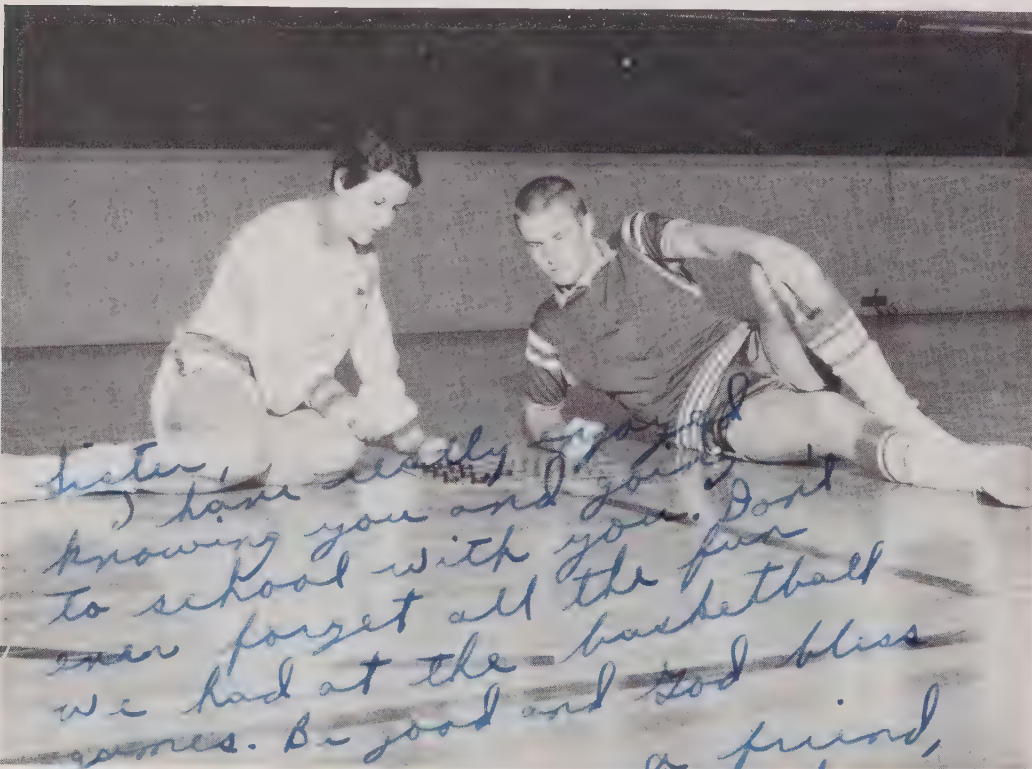 Sister,
I have really njoyed
knowing you and going
to school with you. Dont
ever forget all the fun
we had at the basketball
games. Be good and God bless
a friend,